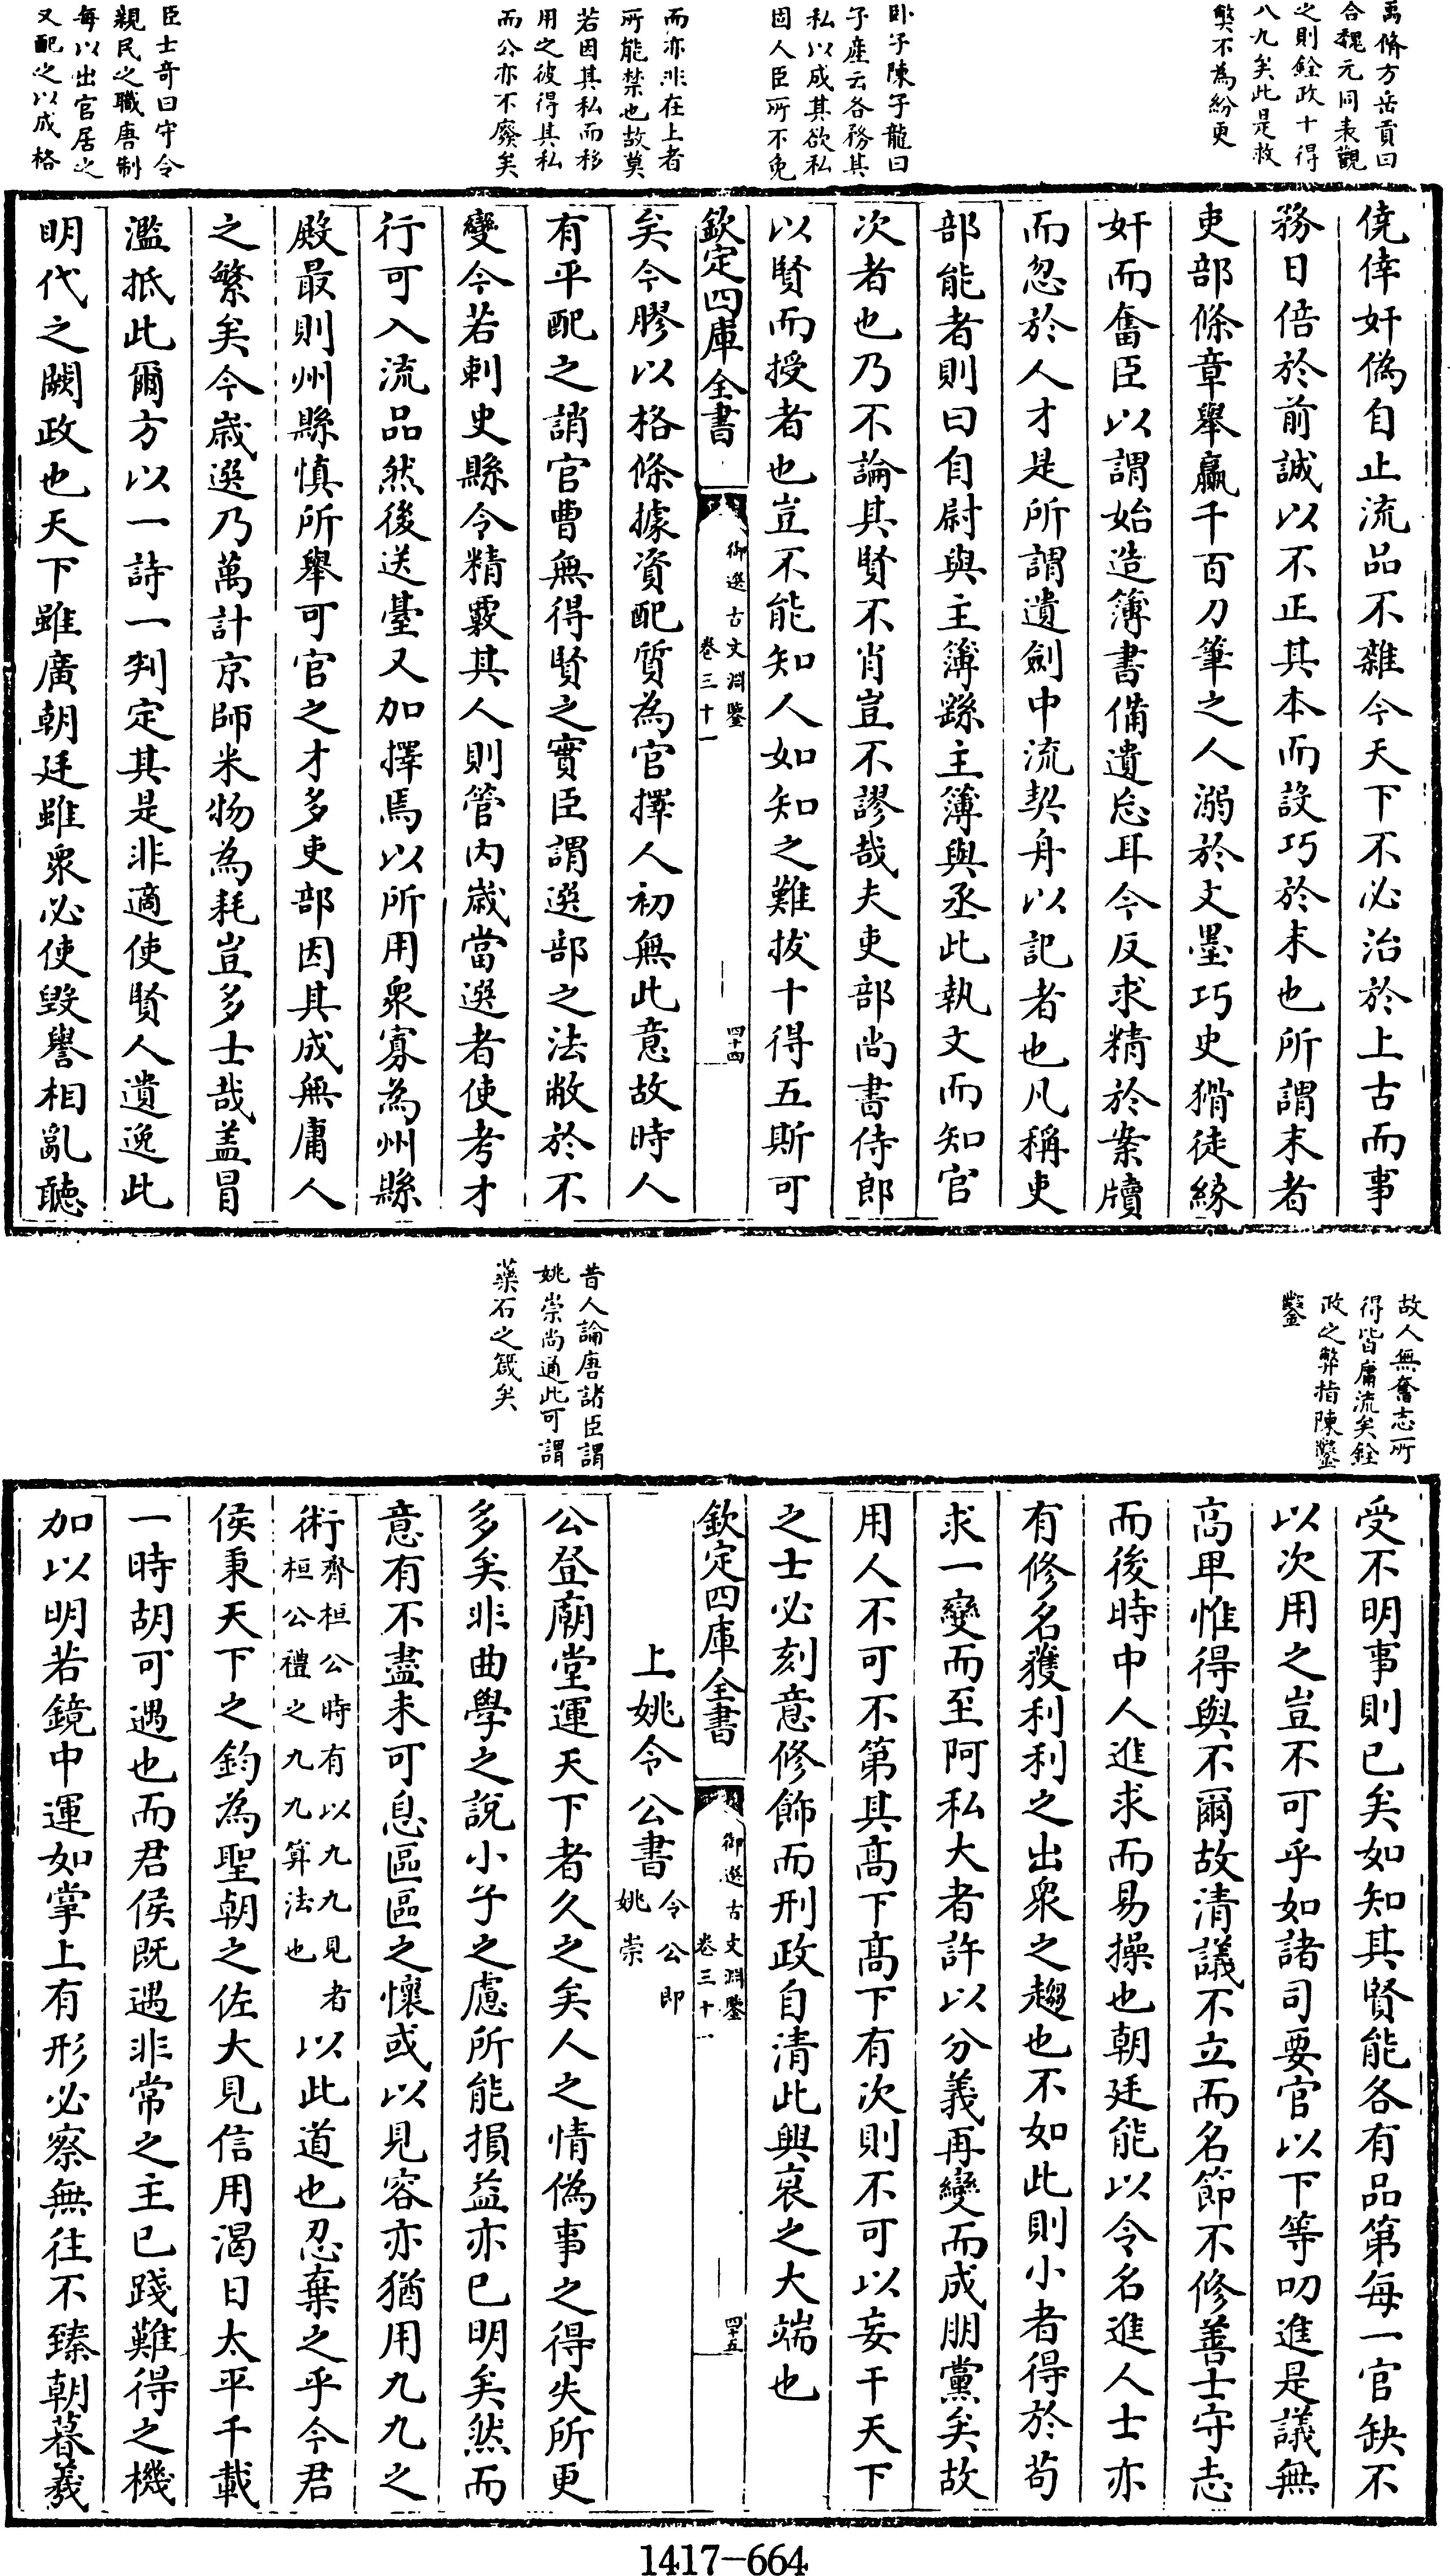 禹脩方岳貢曰
合魏元同表觀
之則銓政十得
八九矣此是救
弊不為紛更
卧子陳子龍曰
子產云各務其
私以成其欲私
固人臣所不免
而亦非在上者
所能禁也故莫
若因其私而移
用之彼得其私
而公亦不廢矣
臣士奇曰守令
親民之職唐制
每以出官居之
又配之以成格
僥倖奸偽自止流品不雜今天下不必治於上古而事
務日倍於前誠以不正其本而設巧於末也所謂末者
吏部條章舉贏千百刀筆之人溺於文墨巧史猾徒緣
奸而奮臣以謂始造簿書備遺忘耳今反求精於案牘
而忽於人才是所謂遺劍中流契舟以記者也凡稱吏
部能者則曰自尉與主簿繇主簿與丞此執文而知官
次者也乃不論其賢不肖豈不謬哉夫吏部尚書侍郎
以賢而授者也豈不能知人如知之難拔十得五斯可
欽定四庫全書
御選古文淵鑒
卷三十一
四十四
矣今膠以格條據資配質為官擇人初無此意故時人
有平配之誚官曹無得賢之實臣謂選部之法敝於不
變今若刺史縣令精覈其人則管內歲當選者使考才
行可入流品然後送臺又加擇焉以所用衆寡為州縣
殿最則州縣慎所舉可官之才多吏部因其成無庸人
之繁矣今歲選乃萬計京師米物為耗豈多士哉盖冒
濫抵此爾方以一詩一判定其是非適使賢人遺逸此
明代之闕政也天下雖廣朝廷雖衆必使毀譽相亂聽
故人無奮志所
得皆庸流矣銓
政之弊指陳鑿
鑿
昔人論唐諸臣謂
姚崇尚通此可謂
藥石之箴矣
受不明事則已矣如知其賢能各有品第每一官缺不
以次用之豈不可乎如諸司要官以下等叨進是議無
高卑惟得與不爾故清議不立而名節不修善士守志
而後時中人進求而易操也朝廷能以令名進人士亦
有修名獲利利之出衆之趨也不如此則小者得於苟
求一變而至阿私大者許以分義再變而成朋黨矣故
用人不可不第其高下高下有次則不可以妄干天下
之士必刻意修飾而刑政自清此興衰之大端也
欽定四庫全書
御選古文淵鑒
卷三十一
四十五
上姚令公書令公即
姚崇
公登廟堂運天下者久之矣人之情偽事之得失所更
多矣非曲學之說小子之慮所能損益亦已明矣然而
意有不盡未可息區區之懷或以見容亦猶用九九之
術齊桓公時有以九九見者
桓公禮之九九算法也
以此道也忍棄之乎今君
侯秉天下之鈞為聖朝之佐大見信用渴日太平千載
一時胡可遇也而君侯既遇非常之主已踐難得之機
加以明若鏡中運如掌上有形必察無往不臻朝暮羲
1417-664